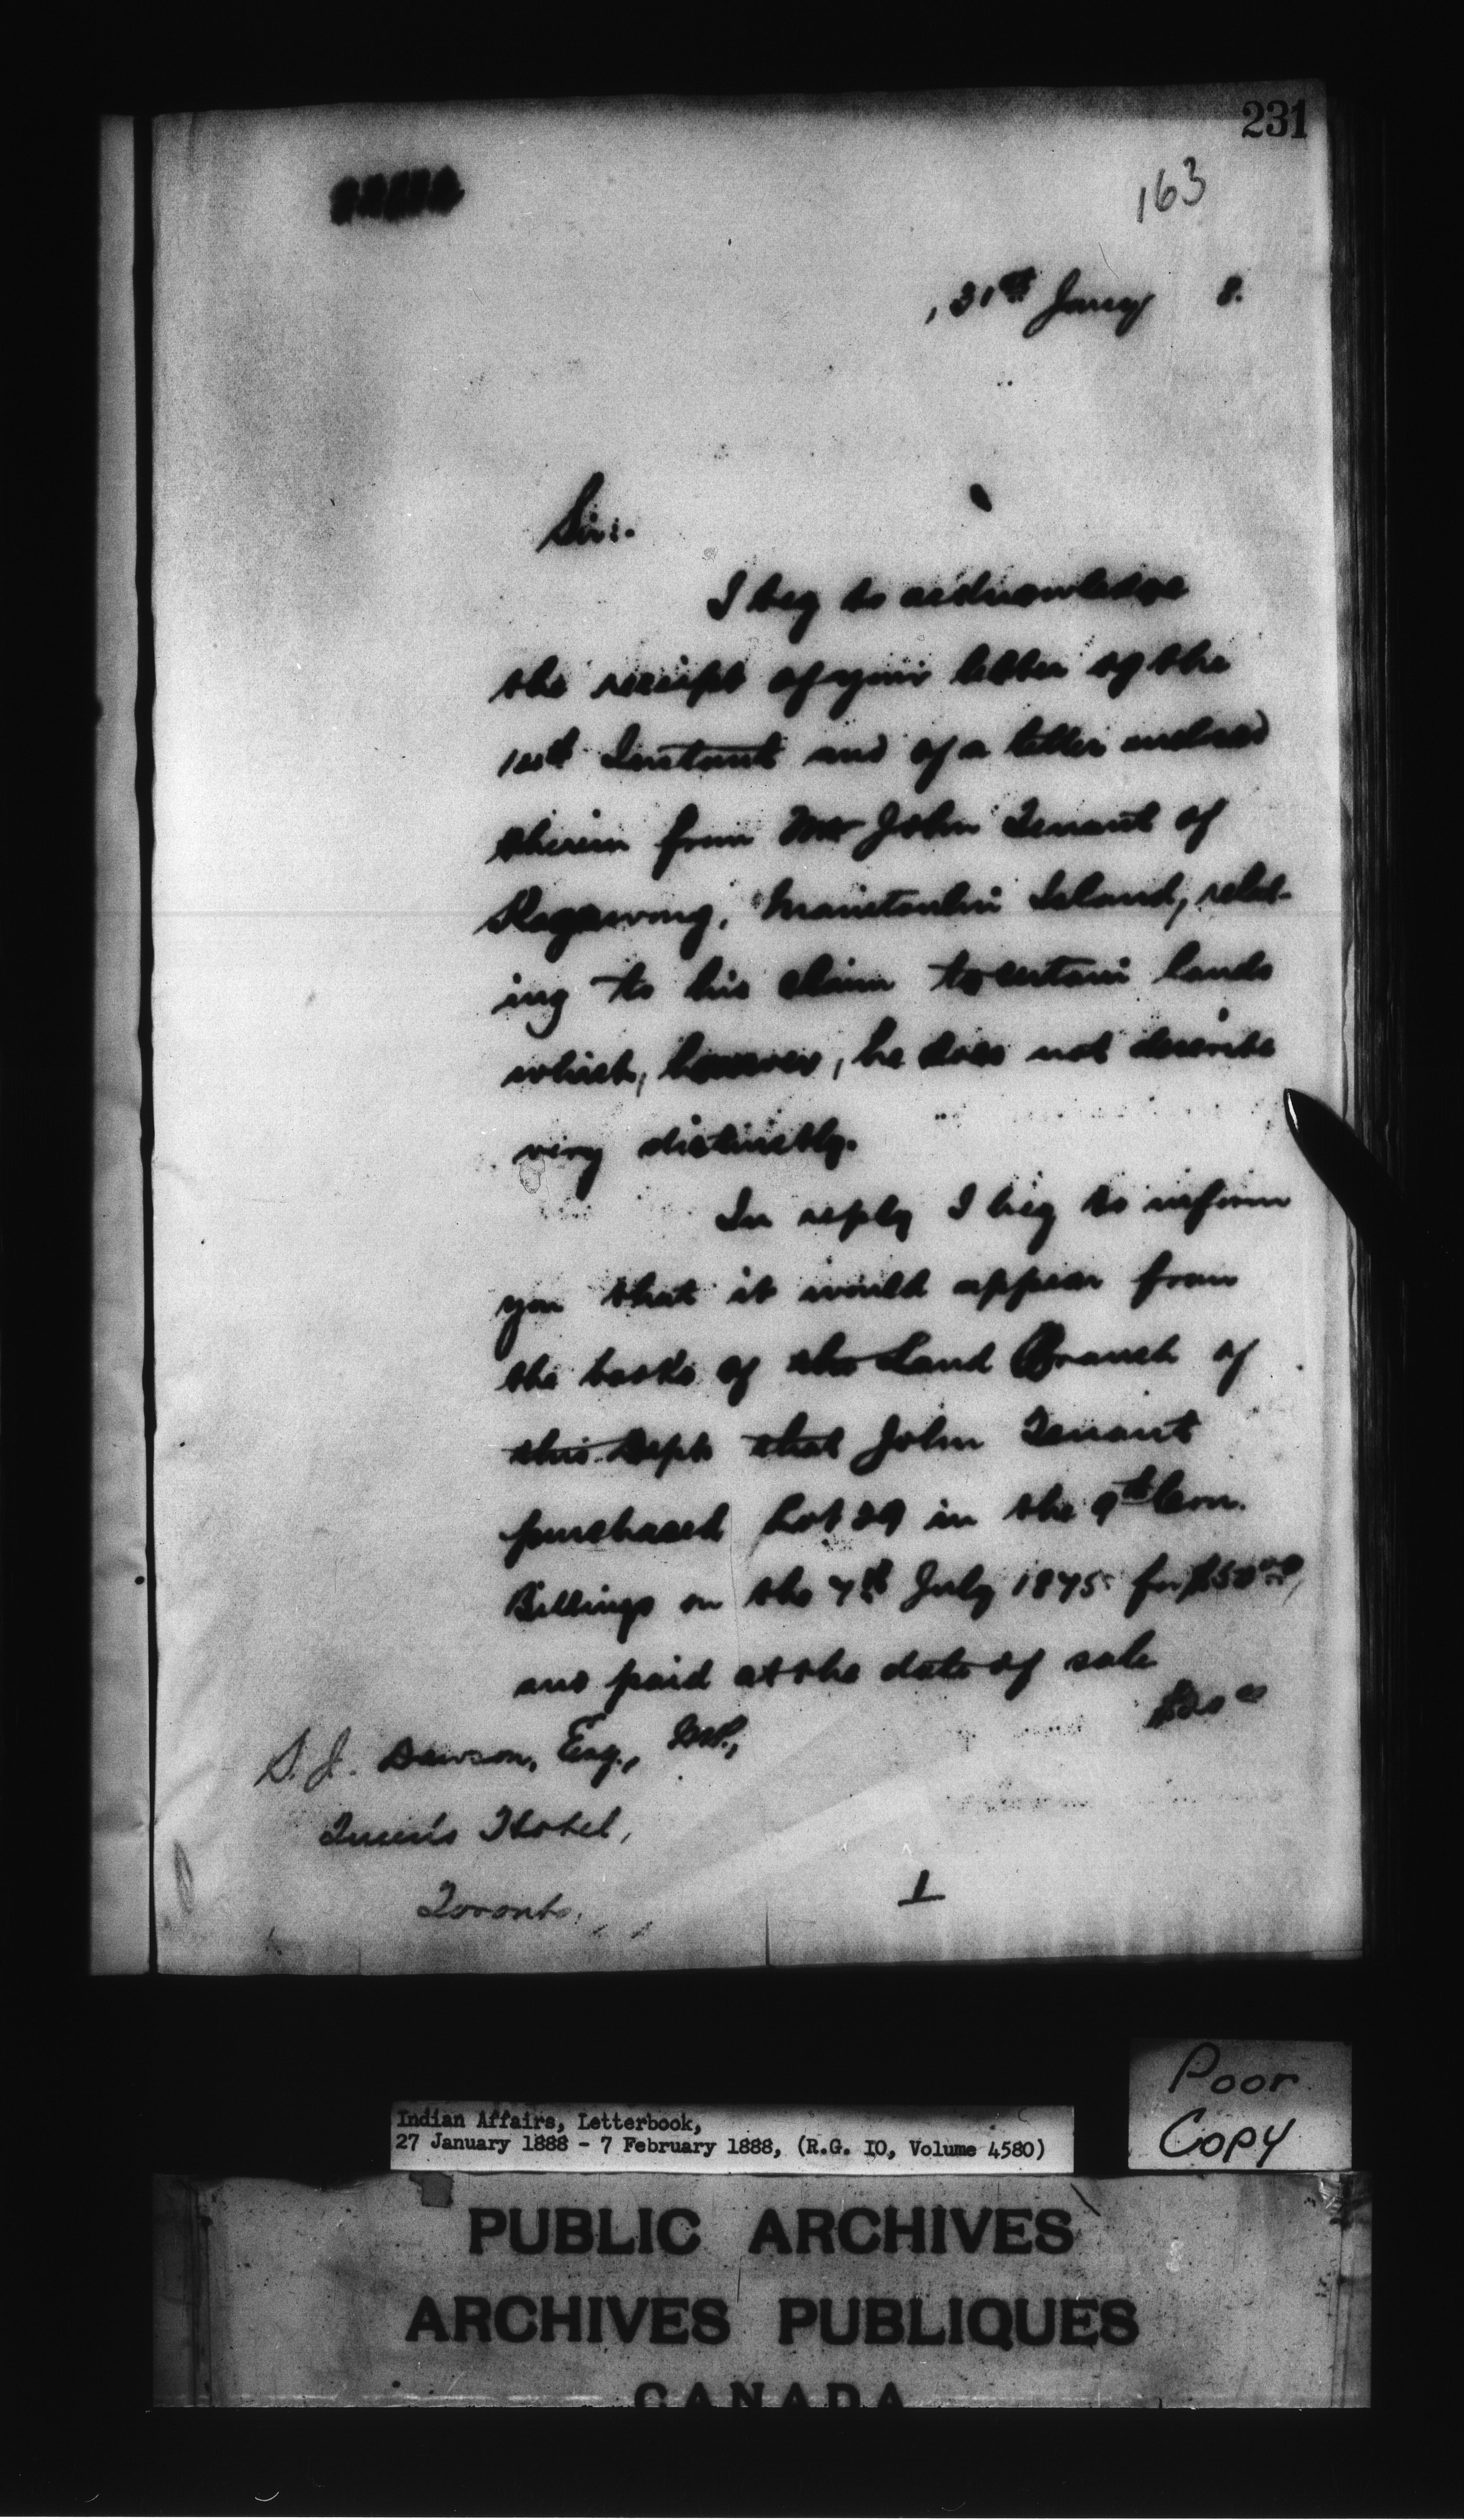 231
163
, 31st Jany 8.
Sir:.
I beg to acknowledge
the receipt of your letter of the
Instant and of a letter enclosed
therein from Mr John Tenant of
Kagawong, Manitoulin Island, relat-
ing to his claim to certain lands
which, however, he does not describe
very distinctly.
In reply I beg to inform
you that it would appear from
the books of the Land Branch of
this Dept that John Tenant
purchased Lot 29 in the 9th Con.
Billings on the July 1875 for
and paid at the date of sale
$20 00
S. J. Dawson, Esq., M.P.,
Queen's Hotel,
Toronto.
1
Poor
Copy
Indian Affairs, Letterbook,
27 January 1888 - 7 February 1888, (R.G. 10, Volume 4580)
PUBLIC ARCHIVES
ARCHIVES PUBLIQUES
CANADA